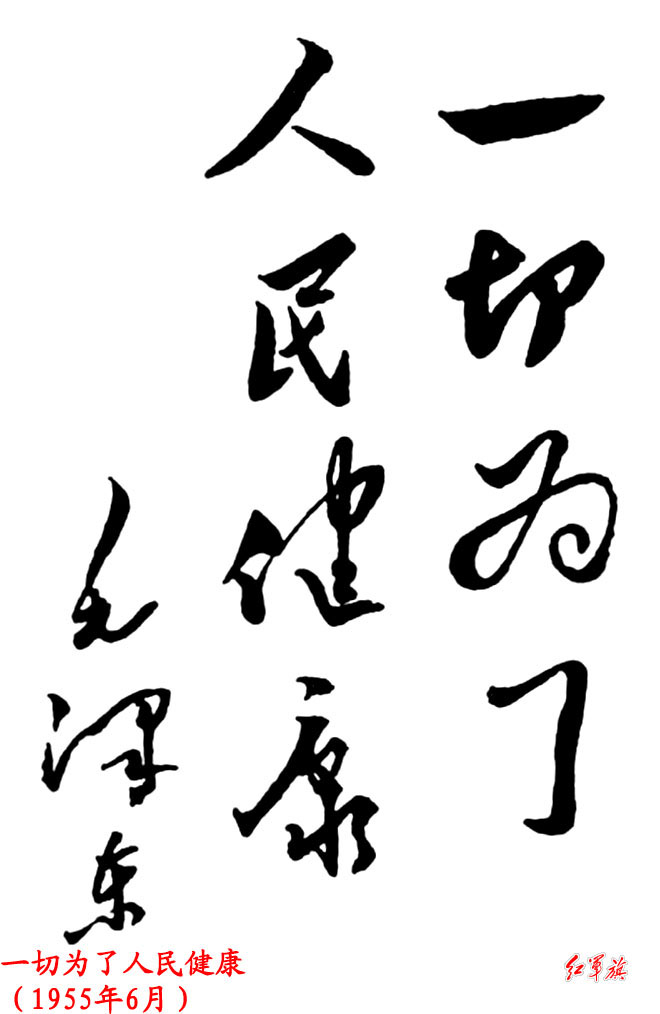 一切为了
人民健康
毛泽东
一切为了人民健康
（1955年6月）
红军旗